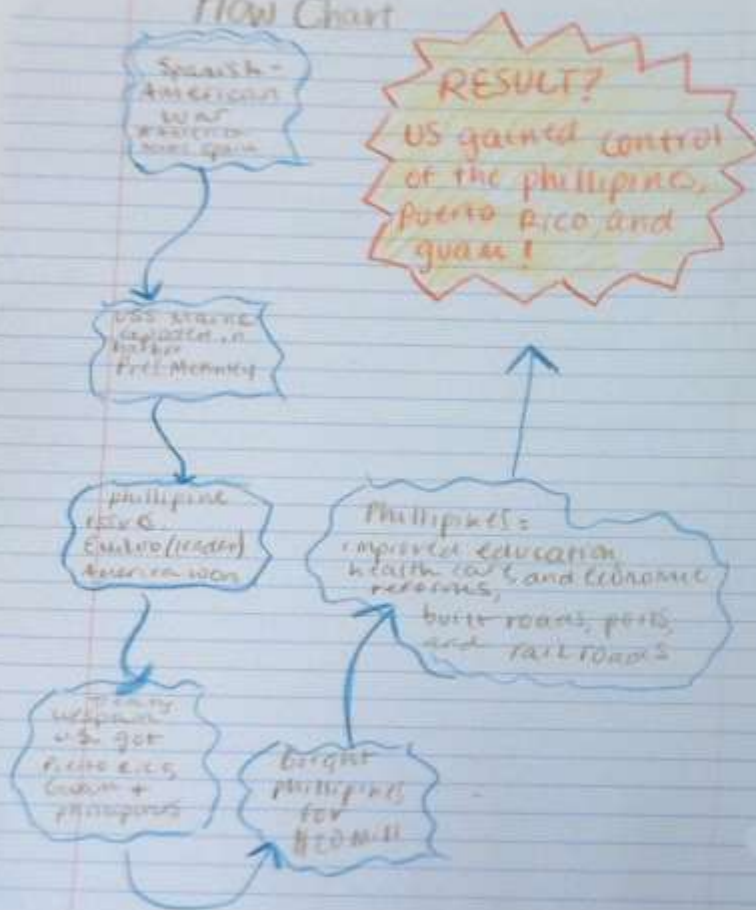 Flow Chart
Spanish-
American
War
America
Spain
USS Maine
exploded in
harbor
Pres. McKinley
phillipine
Emilio (leader)
America won
Treaty
w/spain
U.S. got
Puerto Rico,
Guam +
phillipines
bought
phillipines
for
$20 mill
Phillipines:
improved education
health care and economic
reforms,
built roads, ports,
and railroads
RESULT?
US gained control
of the phillipines,
Puerto Rico, and
guam!